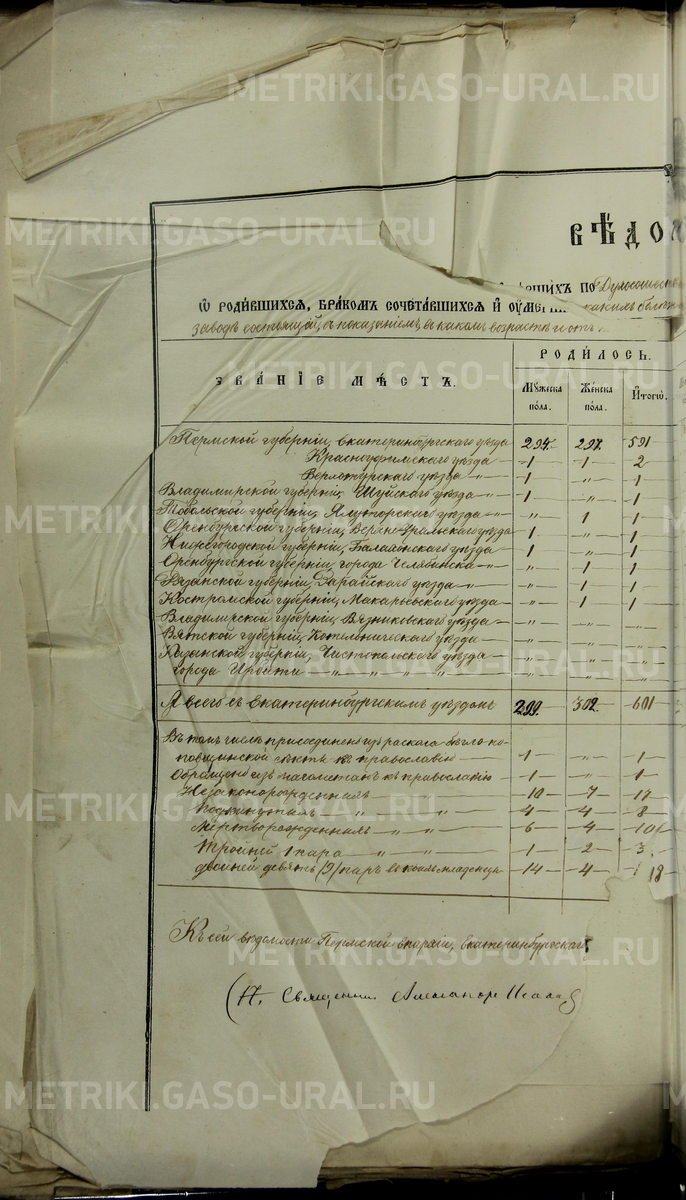 METRIKI.GASO-URAL.RU
ВѢДО
Ѡ РОДИВШИХСЯ, БРАКОМЪ СОЧЕТАВШИХСЯ И ОУМЕР ШИХЪ ПО
заводѣ состоящей, съ показаніемъ, въ какомъ возрастѣ и отъ
ЗВАНІЕ МѢСТЪ.
РОДИЛОСЬ.
Мужеска пола.
Женска пола.
Итого.
Пермской губерніи, Екатеринбургскаго уѣзда 294 297 591
Красноуфимскаго уѣзда 1 1 2
Верхотурскаго уѣзда 1 " 1
Владимирской губерніи, Шуйскаго уѣзда 1 " 1
Тобольской губерніи, Ялуторскаго уѣзда " 1 1
Оренбургской губерніи, Верхнеуральскаго уѣзда 1 " 1
Нижегородской губерніи, Балахонскаго уѣзда 1 " 1
Оренбургской губерніи, города Челябинска " 1 1
Рязанской губерніи, Зарайскаго уѣзда " 1 1
Костромской губерніи, Макарьевскаго уѣзда " 1 1
Владимирской губерніи, Вязниковскаго уѣзда " " "
Вятской губерніи, Котельническаго уѣзда " " "
Казанской губерніи, Чистопольскаго уѣзда " " "
города " " "
А всего съ Екатеринбургскимъ уѣздомъ 299 302 601
Въ томъ числѣ присоединено изъ раскола бѣгло-по-
повщинской секты къ православію 1 " 1
Обращено изъ магометанъ къ православію 1 " 1
Незаконорожденныхъ 10 7 17
Подкинутыхъ 4 4 8
Мертворожденныхъ 6 4 10
Тройней 1 пара 1 2 3
двойней девять (9) паръ въ коихъ младенцы 14 4 18
Къ сей вѣдомости Пермской епархіи, Екатеринбургскаго
Священникъ Александръ